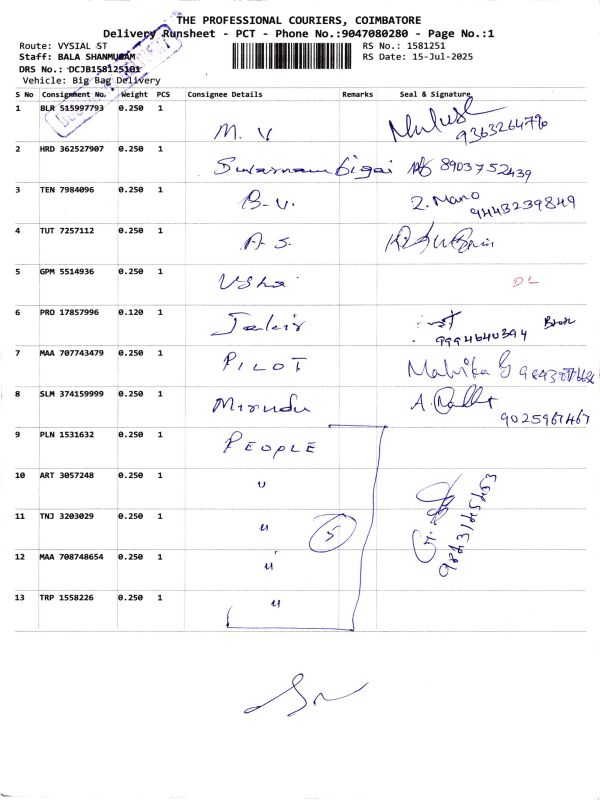 THE PROFESSIONAL COURIERS, COIMBATORE
Delivery Runsheet - PCT - Phone No.:9047080280 - Page No.:1
Route: VYSIAL ST RS No.: 1581251
Staff: BALA SHANMUGAM RS Date: 15-Jul-2025
DRS No.: DCJB158125101
Vehicle: Big Bag Delivery
S No Consignment No. Weight PCS Consignee Details Remarks Seal & Signature
1 BLR 515997793 0.250 1 M. V
2 HRD 362527907 0.250 1 Swarnambigai 8903752439
3 TEN 7984096 0.250 1 B. V. Z. Mano
9443239849
4 TUT 7257112 0.250 1 A S.
5 GPM 5514936 0.250 1 Usha DL
6 PRO 17857996 0.120 1
9994640394
7 MAA 707743479 0.250 1 PILOT
8 SLM 374159999 0.250 1 Mirudu
9025967467
9 PLN 1531632 0.250 1 PEOPLE
10 ART 3057248 0.250 1 "
11 TNJ 3203029 0.250 1 " 5
12 MAA 708748654 0.250 1 "
13 TRP 1558226 0.250 1 "